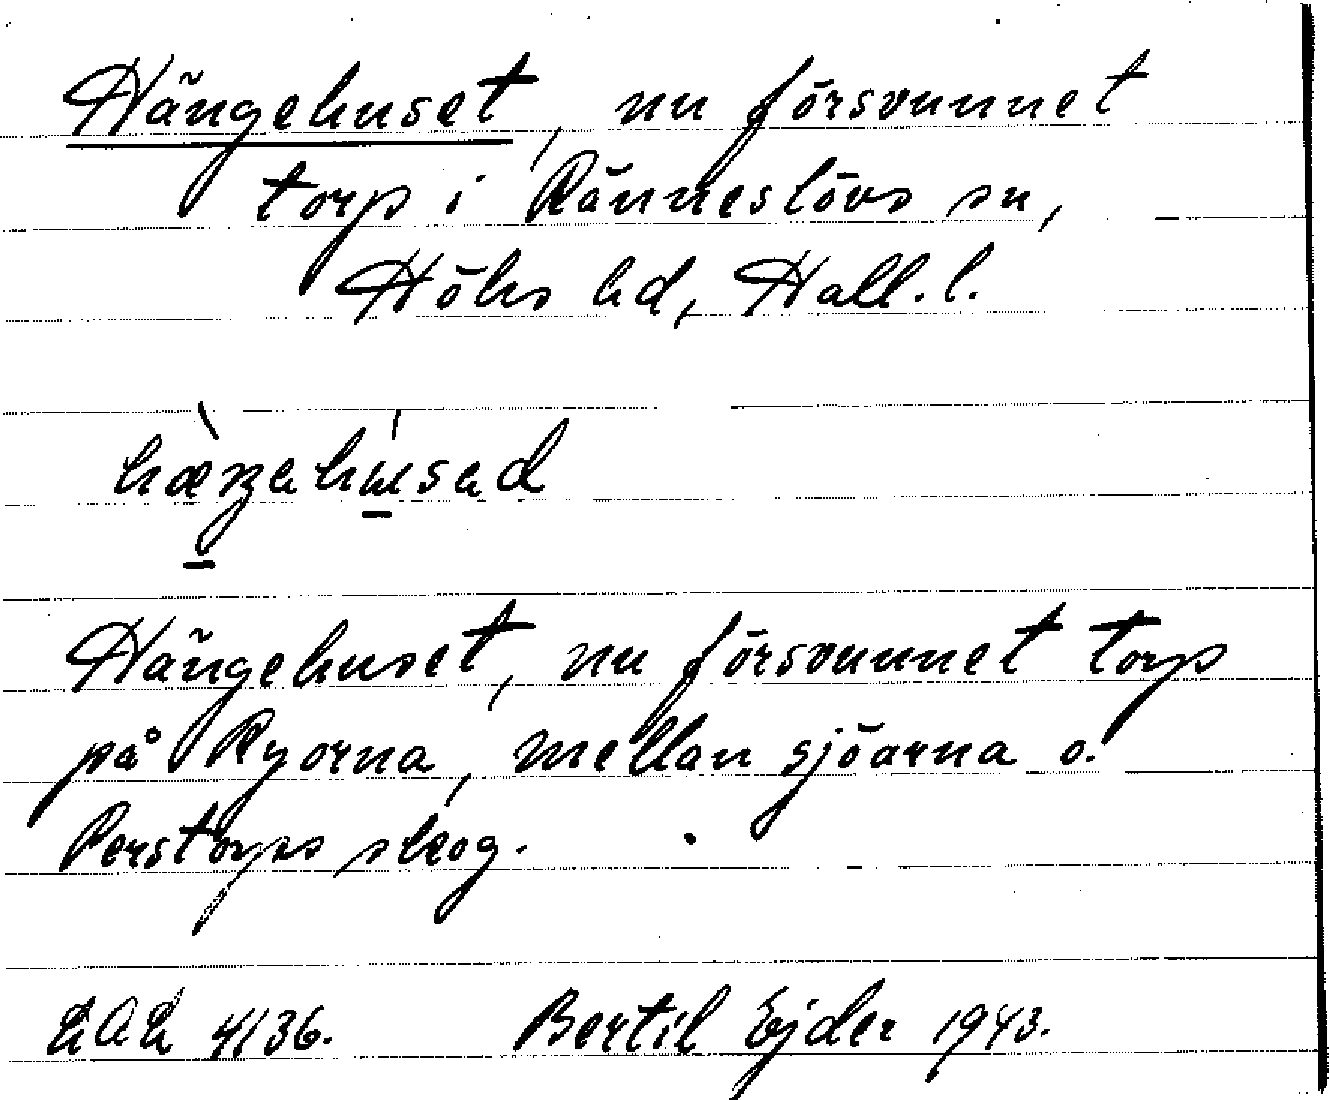 Hängehuset, nu försvunnet
torp i Ränneslövs sn,
Höks hd, Hall. l.
Hängehuset, nu försvunnet torp
på Ryorna, mellan sjöarna o.
Perstorps skog.
4/36. Bertil Ejder 1943.